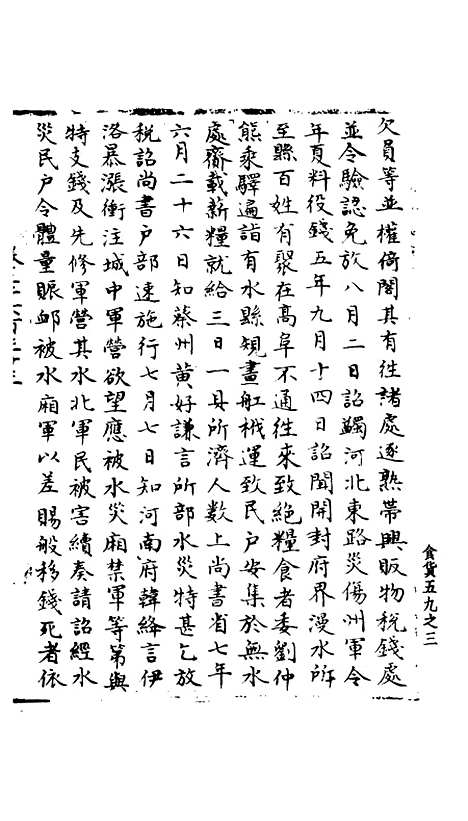 食貨五九之三
欠員等並權倚閣其有往諸處逐熟帶興販物稅錢處
並令驗認免放八月二日詔蠲河北東路災傷州軍令
年夏料役錢五年九月十四日詔聞開封府界漫水所
至縣百姓有聚在高阜不通往來致絶糧食者委劉仲
熊乘驛遍詣有水縣規畫舡栰運致民戶安集於無水
處齎載薪糧就給三日一具所濟人數上尚書省七年
六月二十六日知蔡州黃好謙言所部水災特甚乞放
稅詔尚書戶部速施行七月七日知河南府韓絳言伊
洛暴漲衝注城中軍營欲望應被水災廂禁軍等第與
特支錢及先修軍營其水北軍民被害續奏請詔經水
災民戶令體量賑䘏被水廂軍以差賜般移錢死者依